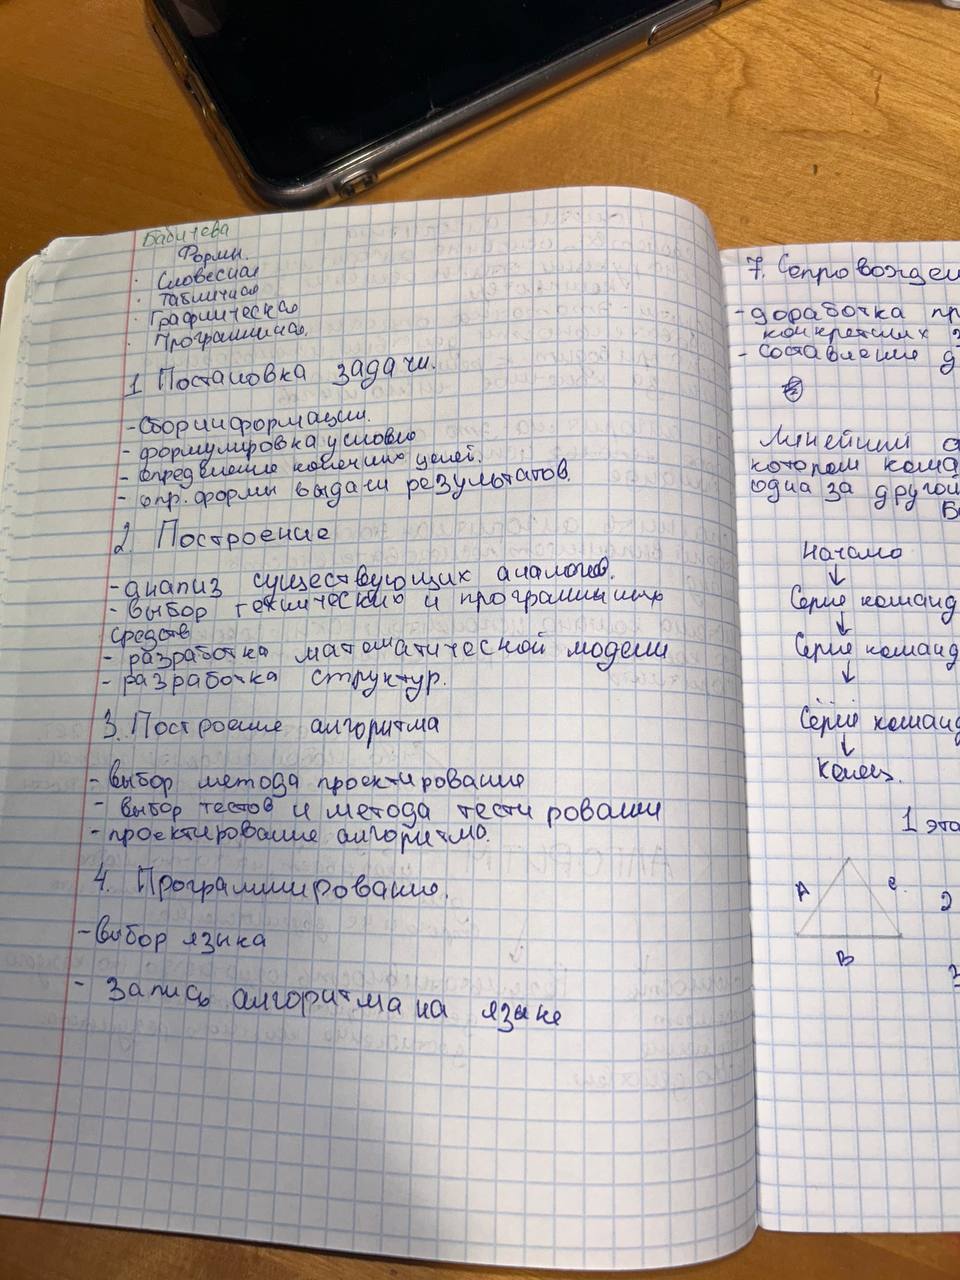 Бабичева
Формы.
· Словесная
· Табличная
· Графическая
· Программная.
1 Постановка задачи.
- Сбор информации.
- формулировка условия
- определение конечных целей.
- опр. формы выдачи результатов.
2. Построение
- анализ существующих аналогов.
- выбор технических и программных
средств
- разработка математической модели
- разработка структур.
3. Построение алгоритма
- выбор метода проектирования
- выбор тестов и метода тестирования
- проектирование алгоритма.
4. Программирование.
- выбор языка
- Запись алгоритма на языке
7. Сопровожден
- доработка пр
конкретных з
- составление д
Линейный а
котором кома
одна за другой
начало
↓
Серия команд
↓
Серия команд
↓
...
Серия команд
↓
Конец.
1 эта
A c. 2
B 3